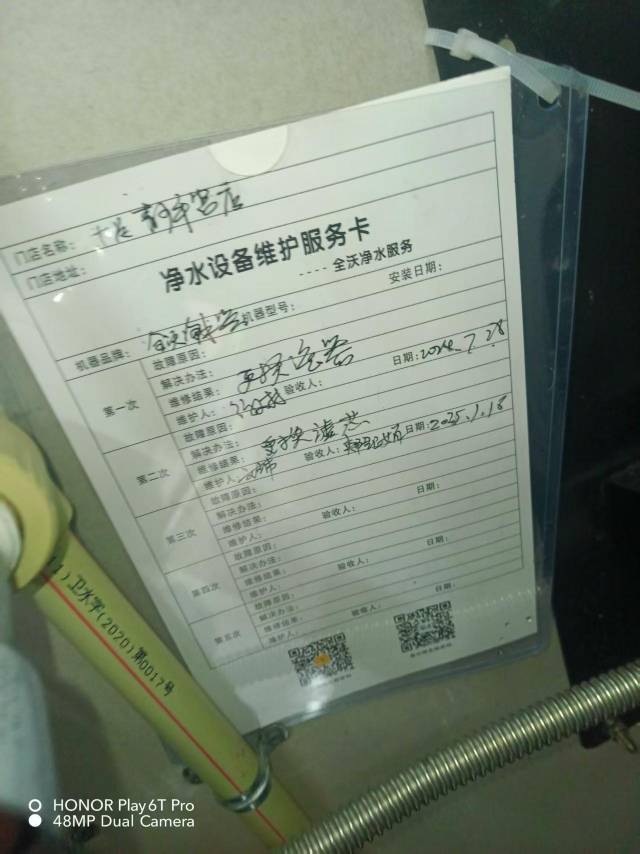 门店名称：
门店地址：
净水设备维护服务卡
----全沃净水服务
机器品牌： 机器型号： 安装日期：
第一次
故障原因：
解决办法： 更换
维修结果：
维护人： 验收人： 日期：2024.7.28
第二次
故障原因：
解决办法： 更换滤芯
维修结果：
维护人： 验收人： 日期：2025.1.18
第三次
故障原因：
解决办法：
维修结果：
维护人： 验收人： 日期：
第四次
故障原因：
解决办法：
维修结果：
维护人： 验收人： 日期：
第五次
故障原因：
解决办法：
维修结果：
维护人： 验收人： 日期：
)卫水字(2020)第0017号
HONOR Play6T Pro
48MP Dual Camera